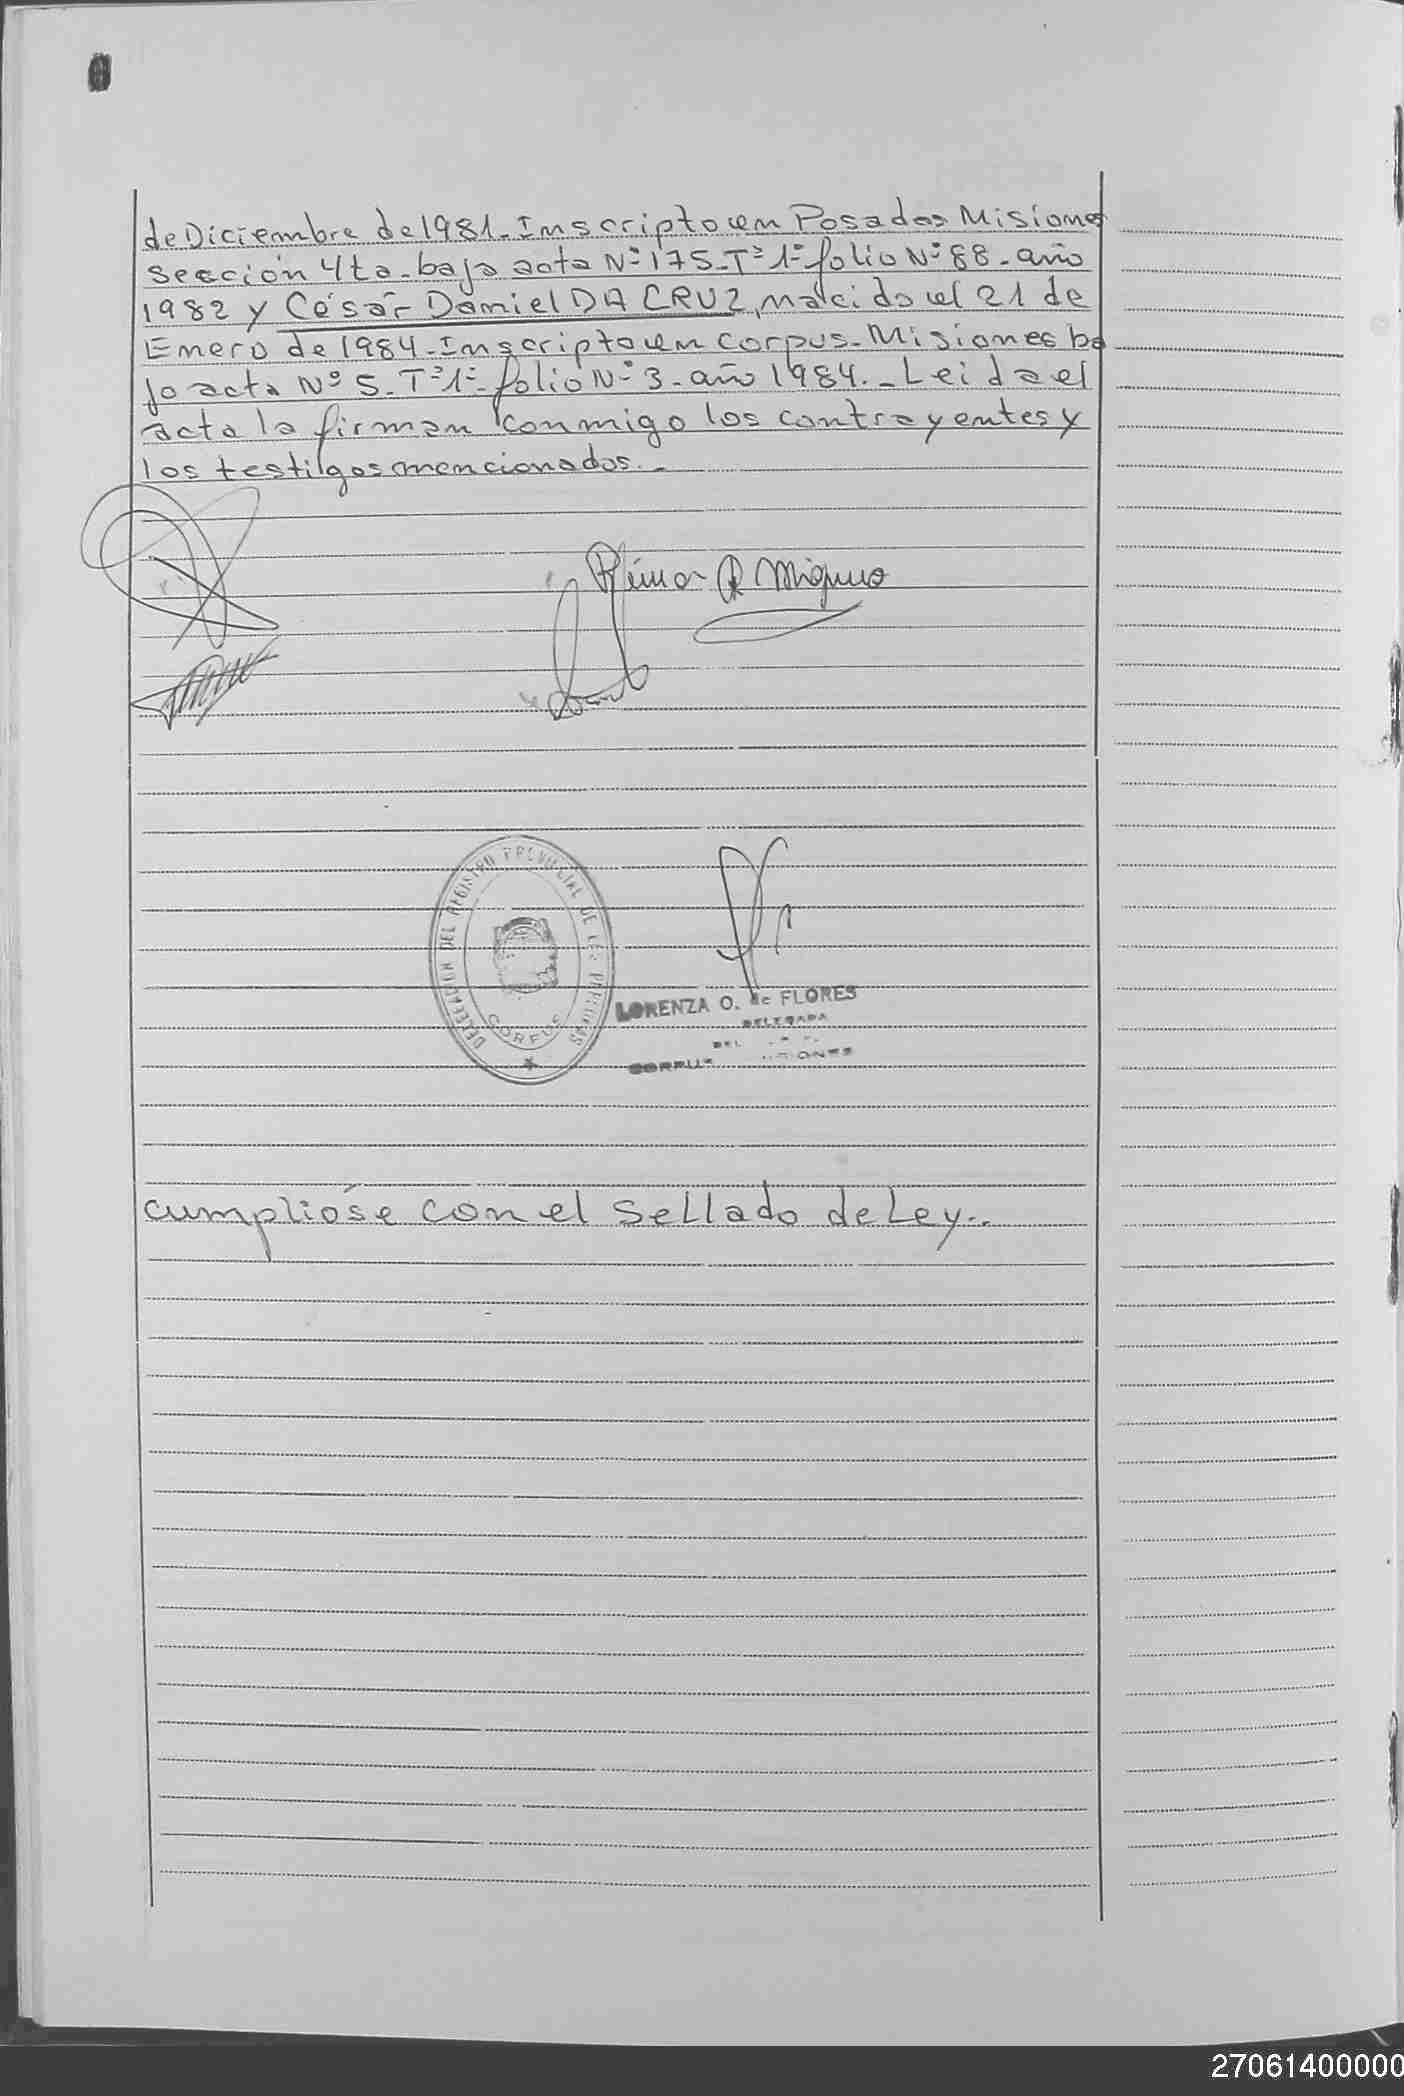 de Diciembre de 1981. Inscripto en Posadas Misiones
Sección 4ta. bajo acta Nº 175. Tº 1º folio Nº 88. año
1982 y César Daniel DA CRUZ, nacido el 21 de
Enero de 1984. Inscripto en Corpus. Misiones ba
jo acta Nº 5. Tº 1º folio Nº 3. año 1984. Leida el
acta la firman conmigo los contrayentes y
los testigos mencionados.
DELEGACION DEL REGISTRO PROVINCIAL DE LAS PERSONAS
CORPUS
LORENZA O. de FLORES
DELEGADA
CORPUS MISIONES
cumplióse con el Sellado de Ley..
27061400000